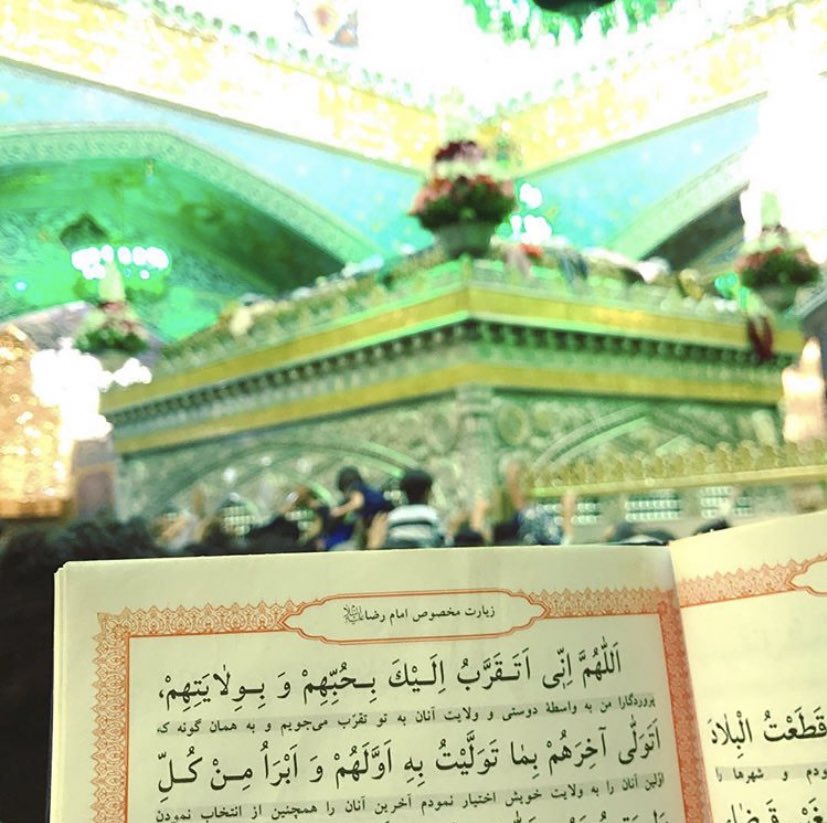 زیارت مخصوص امام رضا
اَللّٰهُمَّ اِنّى اَتَقَرَّبُ اِلَيْكَ بِحُبِّهِمْ وَ بِوِلٰايَتِهِمْ،
پروردگارا من به واسطهٔ دوستی و ولایت آنان به تو تقرّب می‌جویم و به همان گونه که
اَتَوَلّٰى آخِرَهُمْ بِمٰا تَوَلَّيْتُ بِهِ اَوَّلَهُمْ وَ اَبْرَاُ مِنْ كُلِّ
اوّلین آنان را به ولایت خویش اختیار نمودم آخرین آنان را همچنین از انتخاب نمودن
قَطَعْتُ الْبِلٰادَ
ودم و شهرها را